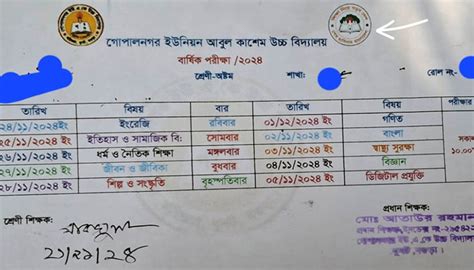 গোপালনগর ইউনিয়ন আবুল কাশেম উচ্চ বিদ্যালয়
বার্ষিক পরীক্ষা /২০২৪
শ্রেণী-অষ্টম শাখা: রোল নং-
তারিখ বিষয় বার তারিখ বিষয় পরীক্ষা
২৪/১১/২০২৪ ইং ইংরেজি রবিবার ০১/১২/২০২৪ ইং গণিত
২৫/১১/২০২৪ ইং ইতিহাস ও সামাজিক বি: সোমবার ০২/১১/২০২৪ ইং বাংলা
২৬/১১/২০২৪ ইং ধর্ম ও নৈতিক শিক্ষা মঙ্গলবার ০৩/১১/২০২৪ ইং স্বাস্থ্য সুরক্ষা ১০.০০
২৭/১১/২০২৪ ইং জীবন ও জীবিকা বুধবার ০৪/১১/২০২৪ ইং বিজ্ঞান
২৮/১১/২০২৪ ইং শিল্প ও সংস্কৃতি বৃহস্পতিবার ০৫/১১/২০২৪ ইং ডিজিটাল প্রযুক্তি
শ্রেণী শিক্ষক: প্রধান শিক্ষক:
মোঃ আতাউর রহমান